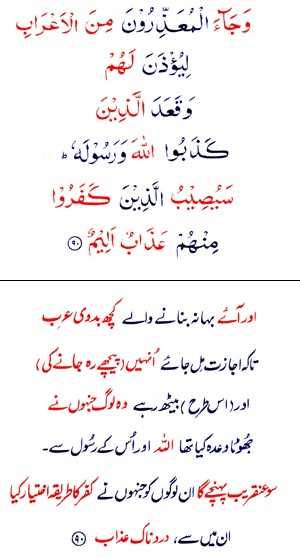 وَجَآءَ الْمُعَذِّرُوْنَ مِنَ الْاَعْرَابِ
لِيُؤْذَنَ لَهُمْ
وَقَعَدَ الَّذِيْنَ
كَذَبُوا اللّٰهَ وَرَسُوْلَهٗ ؕ
سَيُصِيْبُ الَّذِيْنَ كَفَرُوْا
مِنْهُمْ عَذَابٌ اَلِيْمٌ ۹۰
اور آئے بہانہ بنانے والے کچھ بدوی عرب
تاکہ اجازت مِل جائے اُنہیں (پیچھے رہ جانے کی)
اور (اس طرح) بیٹھ رہے وہ لوگ جنہوں نے
جُھوٹا وعدہ کیا تھا اللہ اور اُس کے رسُول سے۔
سو عنقریب پہنچے گا ان لوگوں کو جنہوں نے کفر کا طریقہ اختیار کیا
ان میں سے، دردناک عذاب ۹۰